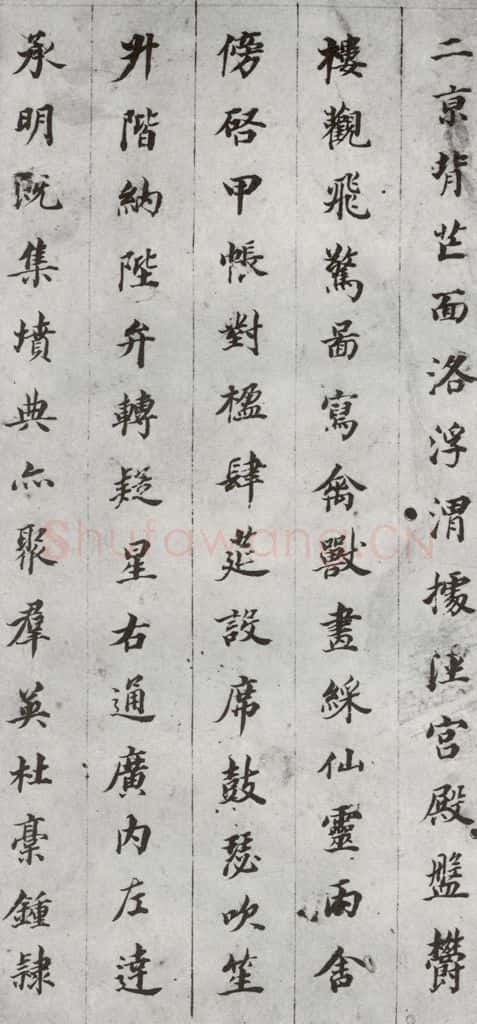 二京背芒面洛浮渭據涇宮殿盤欝
樓觀飛驚啚寫禽獸畫綵仙靈丙舍
傍啓甲帳對楹肆莚設席鼓瑟吹笙
升階納陛弁轉疑星右通廣内左達
承明既集墳典亦聚羣英杜稾鍾隸
Shufawang.CN